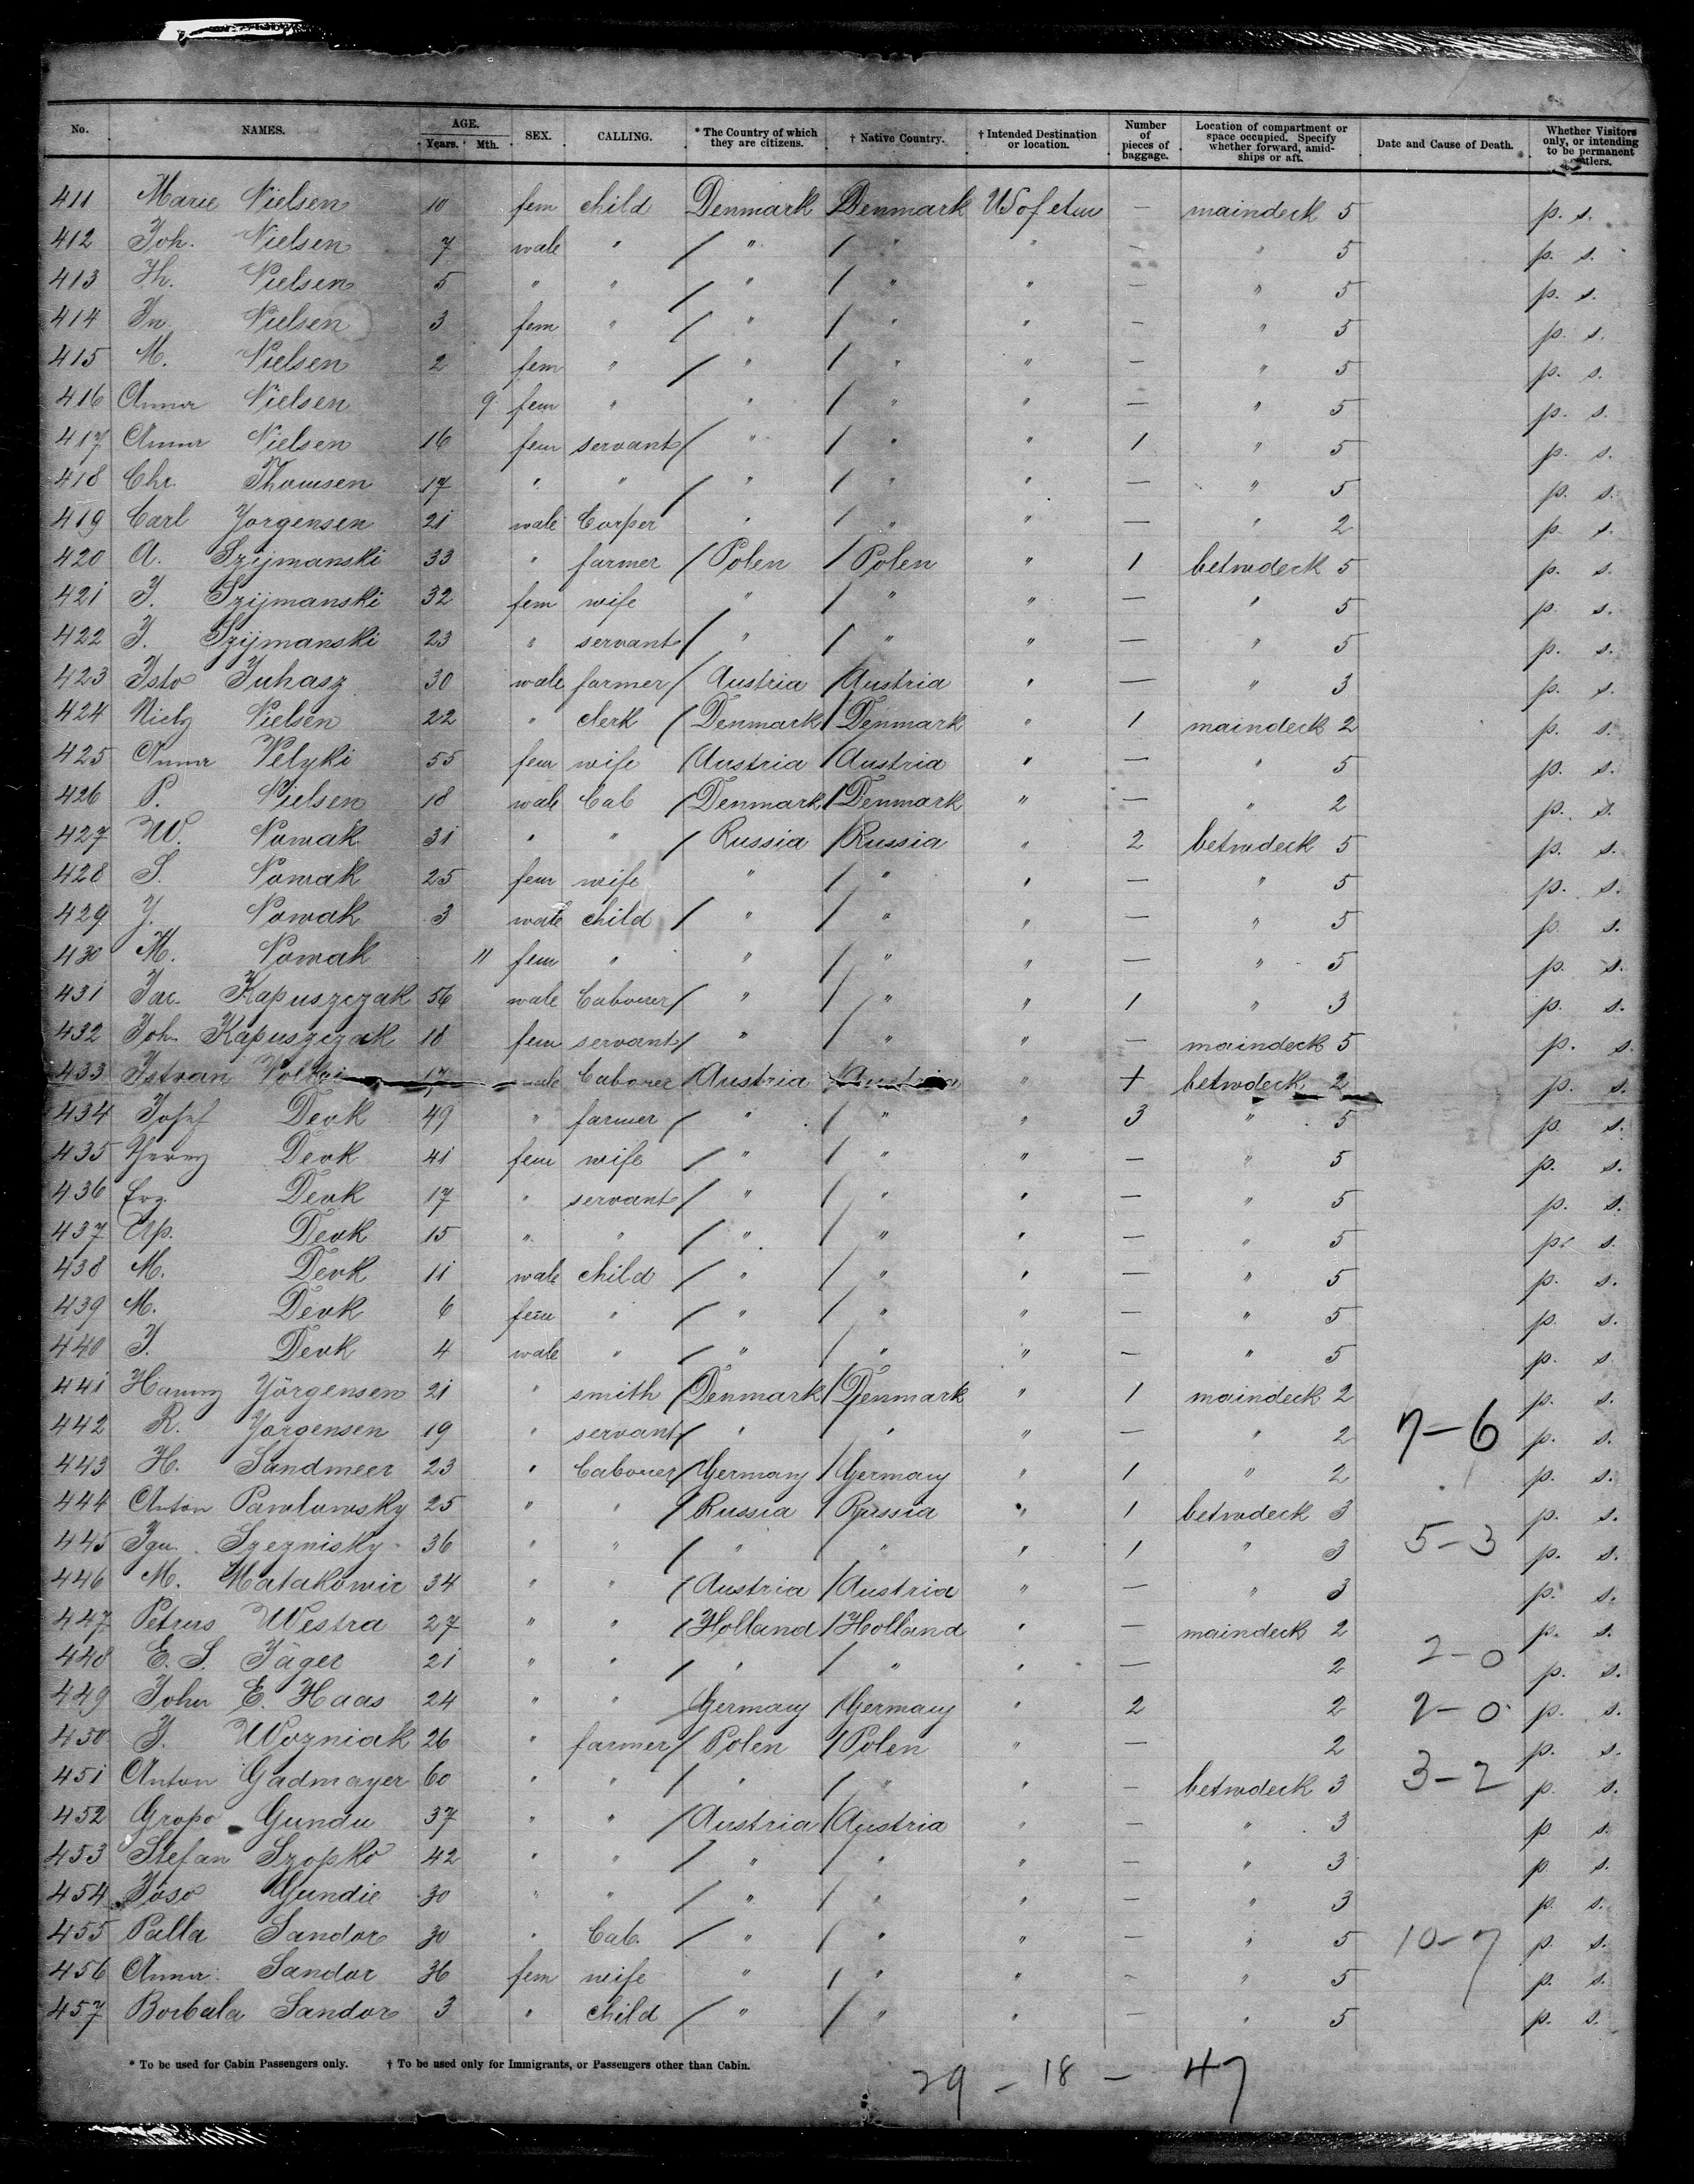 No. NAMES. AGE. Years. Mth. SEX. CALLING. * The Country of which they are citizens. † Native Country. † Intended Destination or location. Number of pieces of baggage. Location of compartment or space occupied. Specify whether forward, amidships or aft. Date and Cause of Death. Whether Visitors only, or intending to be permanent settlers.
411 Marie Nielsen 10 fem child Denmark Denmark — maindeck 5 p. s.
412 Joh. Nielsen 7 male " / " / " " — " 5 p. s.
413 Th. Nielsen 5 " " / " / " " — " 5 p. s.
414 Nielsen 3 fem " / " / " " — " 5 p. s.
415 M. Nielsen 2 fem " / " / " " — " 5 p. s.
416 Anna Nielsen 9 fem " " / " " — " 5 p. s.
417 Anna Nielsen 16 fem servant / " / " " 1 " 5 p. s.
418 Chr. Thomsen 17 " " / " / " " — " 5 p. s.
419 Carl Jorgensen 21 male " / " " — " 2 p. s.
420 A. Szijmanski 33 " farmer / Polen / Polen " 1 betwdeck 5 p. s.
421 J. Szijmanski 32 fem wife " / " " — " 5 p. s.
422 J. Szijmanski 23 " servant / " / " " — " 5 p. s.
423 Isto Juhasz 30 male farmer / Austria / Austria " — " 3 p. s.
424 Niels Nielsen 22 " clerk / Denmark / Denmark " 1 maindeck 2 p. s.
425 Anna Velyki 55 fem wife / Austria / Austria " — " 5 p. s.
426 P. Nielsen 18 male Lab / Denmark / Denmark " — " 2 p. s.
427 W. Nowak 31 " " / Russia / Russia " 2 betwdeck 5 p. s.
428 S. Nowak 25 fem wife " / " " — " 5 p. s.
429 J. Nowak 3 male child / " / " " — " 5 p. s.
430 M. Nowak 11 fem " " / " " — " 5 p. s.
431 Jac. Kapuszczak 56 male Labourer / " / " " 1 " 3 p. s.
432 Joh. Kapuszczak 18 fem servant / " / " " — maindeck 5 p. s.
433 Istvan 17 male Labourer / Austria / Austria " betwdeck 2 p. s.
434 Josef Devk 49 " farmer / " / " " 3 " 5 p. s.
435 Devk 41 fem wife / " / " " — " 5 p. s.
436 Erz. Devk 17 " servant / " / " " — " 5 p. s.
437 Ap. Devk 15 " " / " / " " — " 5 p. s.
438 M. Devk 11 male child / " / " " — " 5 p. s.
439 M. Devk 6 fem " / " / " " — " 5 p. s.
440 J. Devk 4 male " / " / " " — " 5 p. s.
441 Hanny Jörgensen 21 " smith / Denmark / Denmark " 1 maindeck 2 p. s.
442 R. Jorgensen 19 " servant / " / " " — " 2 7-6 p. s.
443 H. Sandmeer 23 " Labourer / Germany / Germany " 1 " 2 p. s.
444 Anton Pawlowsky 25 " " / Russia / Russia " 1 betwdeck 3 p. s.
445 Ign. Szeznisky 36 " " / " / " " 1 " 3 5-3 p. s.
446 M. Matakowic 34 " " / Austria / Austria " — " 3 p. s.
447 Petrus Westra 27 " " / Holland / Holland " — maindeck 2 p. s.
448 E. S. Jäger 21 " " / " / " " — 2 2-0 p. s.
449 John E. Haas 24 " " / Germany / Germany " 2 2 2-0 p. s.
450 J. Wozniak 26 " farmer / Polen / Polen " — 2 p. s.
451 Anton Gadmayer 60 " " / " / " " — betwdeck 3 3-2 p. s.
452 Gropo Gundu 37 " " / Austria / Austria " — " 3 p. s.
453 Stefan Szopko 42 " " / " / " " — " 3 p. s.
454 Joso Gundie 30 " " / " / " " — " 3 p. s.
455 Palla Sandor 30 " Lab. / " / " " — " 5 10-7 p. s.
456 Anna Sandor 36 fem wife " / " " — " 5 p. s.
457 Borbala Sandor 3 " child / " / " " — " 5 p. s.
* To be used for Cabin Passengers only. † To be used only for Immigrants, or Passengers other than Cabin.
29 - 18 - 47